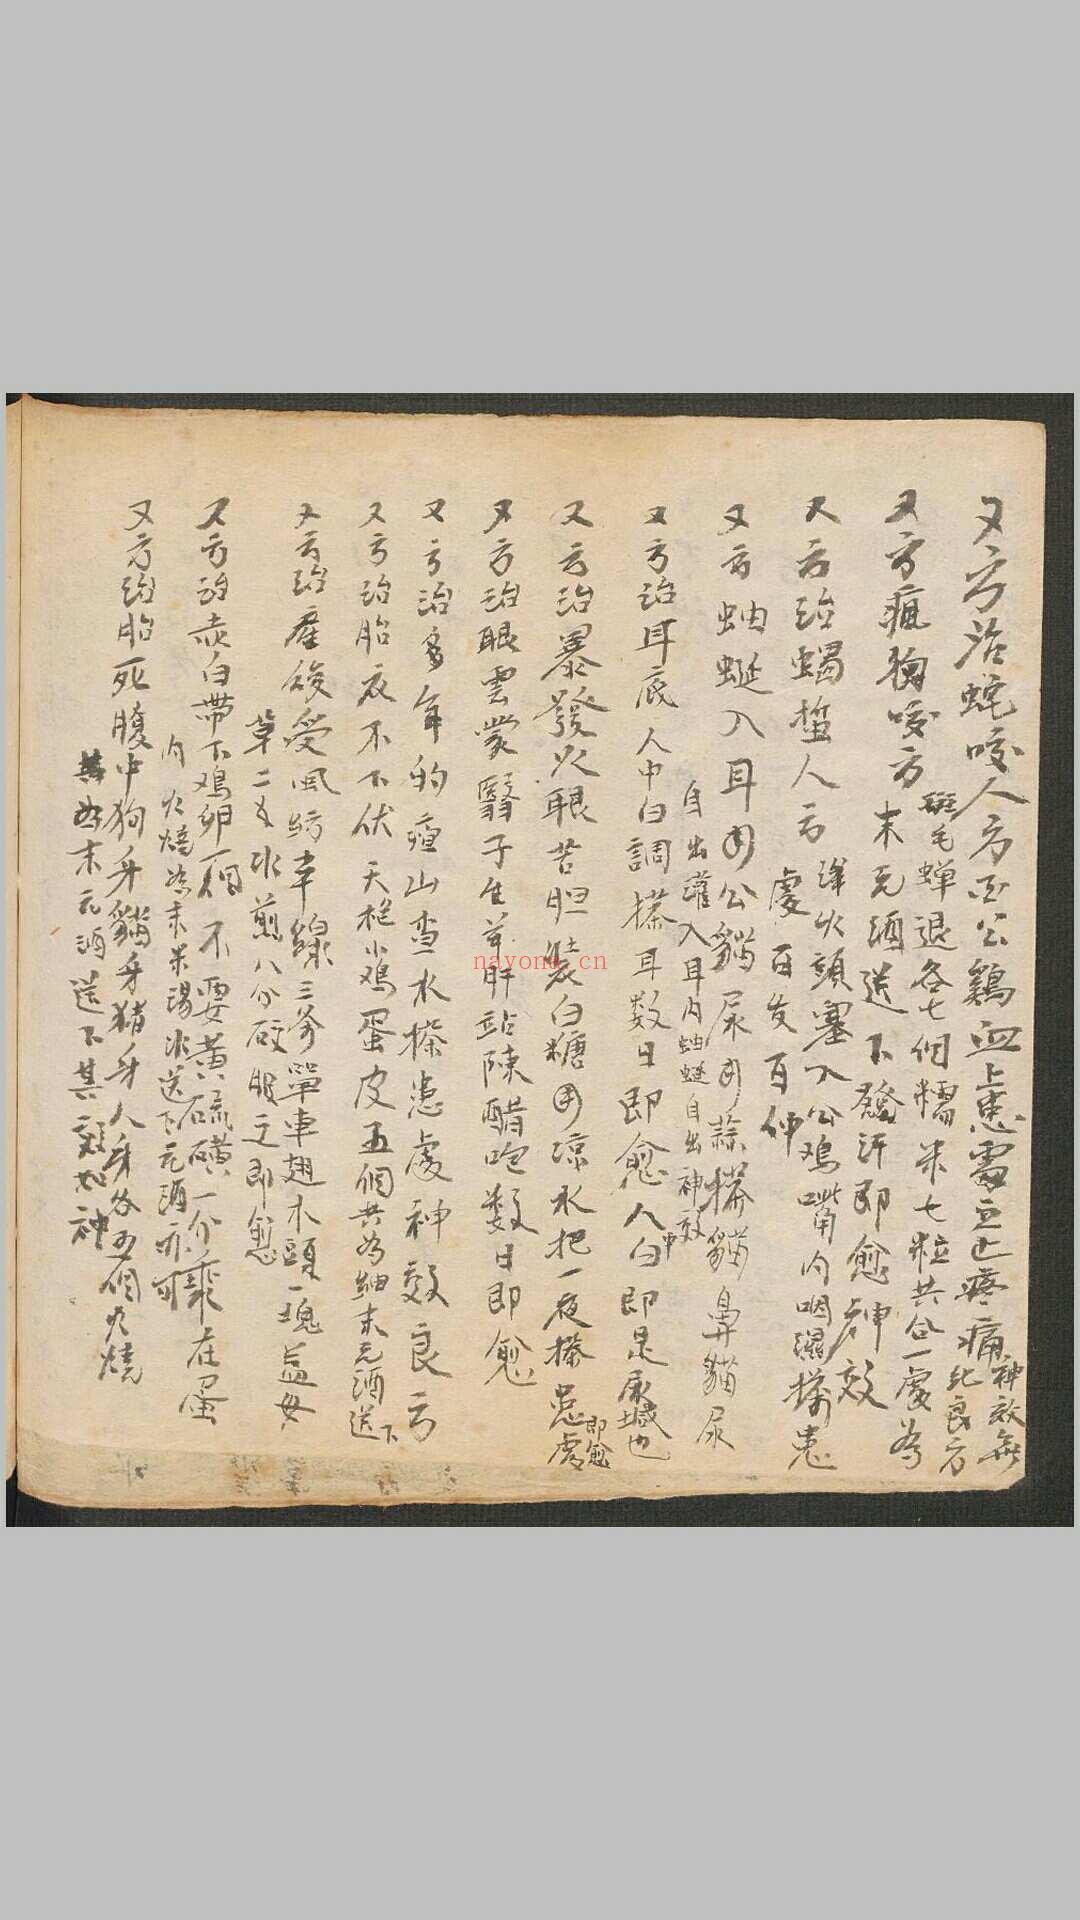 又方治蛇咬人方 白公鷄血上患處立止疼痛 神效無
比良方
又方瘋狗咬方 斑毛蟬退各七個糯米七粒共合一處為
末元酒送下發汗即愈神效
又方治蝎蜇人方 洋火頭塞入公鸡嘴內咽濕搽患
處百发百仲
又方蚰蜒入耳 用公貓尿用蒜搽貓鼻貓尿
自出灌入耳內蚰蜒自出神效
又方治耳底 人中白調搽耳数日即愈人中白即是尿堿也
又方治暴發火眼 苦胆裝白糖用凉水把一夜搽患處
即愈
又方治眼雲蒙翳子 生羊肝站陳醋吃数日即愈
又方治多年的 山查水搽患處神效良方
又方治胎衣不下 伏天抱小鸡蛋皮五個共為細末元酒送下
又方治產後受風 線三 單車翅木頭一塊益母
草二 水煎八分 服之即愈
又方治赤白帶下 鸡卵一個不要黃硫磺一分裝在蛋
內火燒為末米湯水送下元酒亦可
又方治胎死腹中 狗牙貓牙猪牙人牙各五個火燒
共為末元酒送下其效如神
nayona.cn